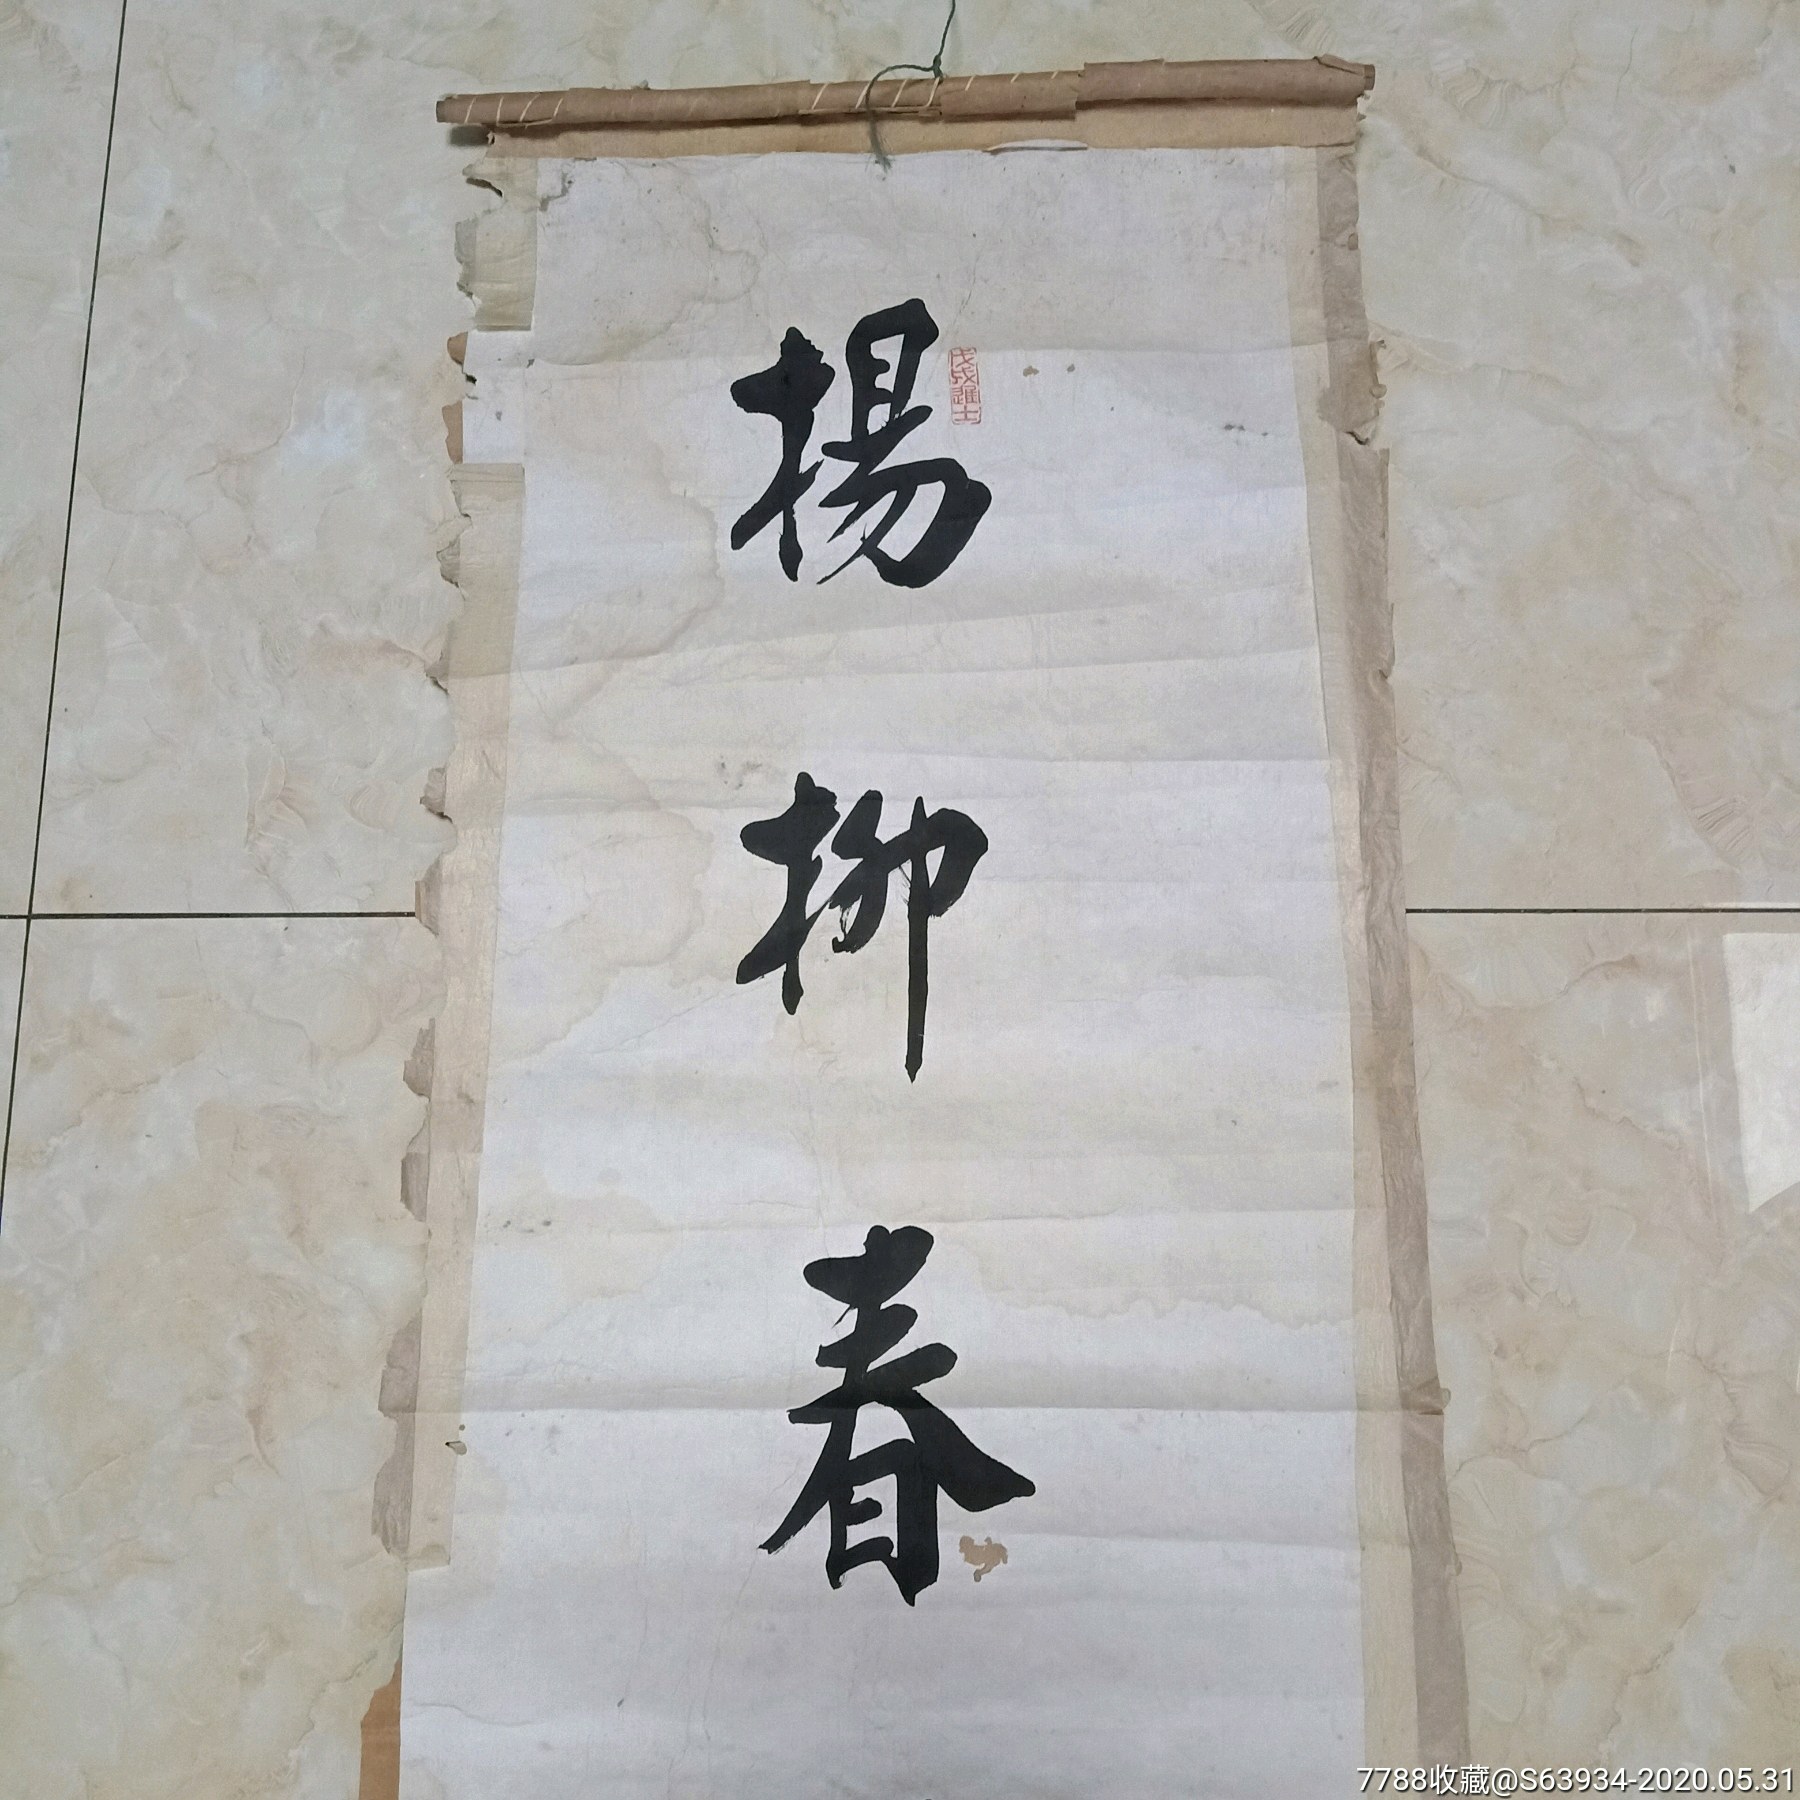 楊
柳
春
戊戌進士
7788收藏@S63934-2020.05.31